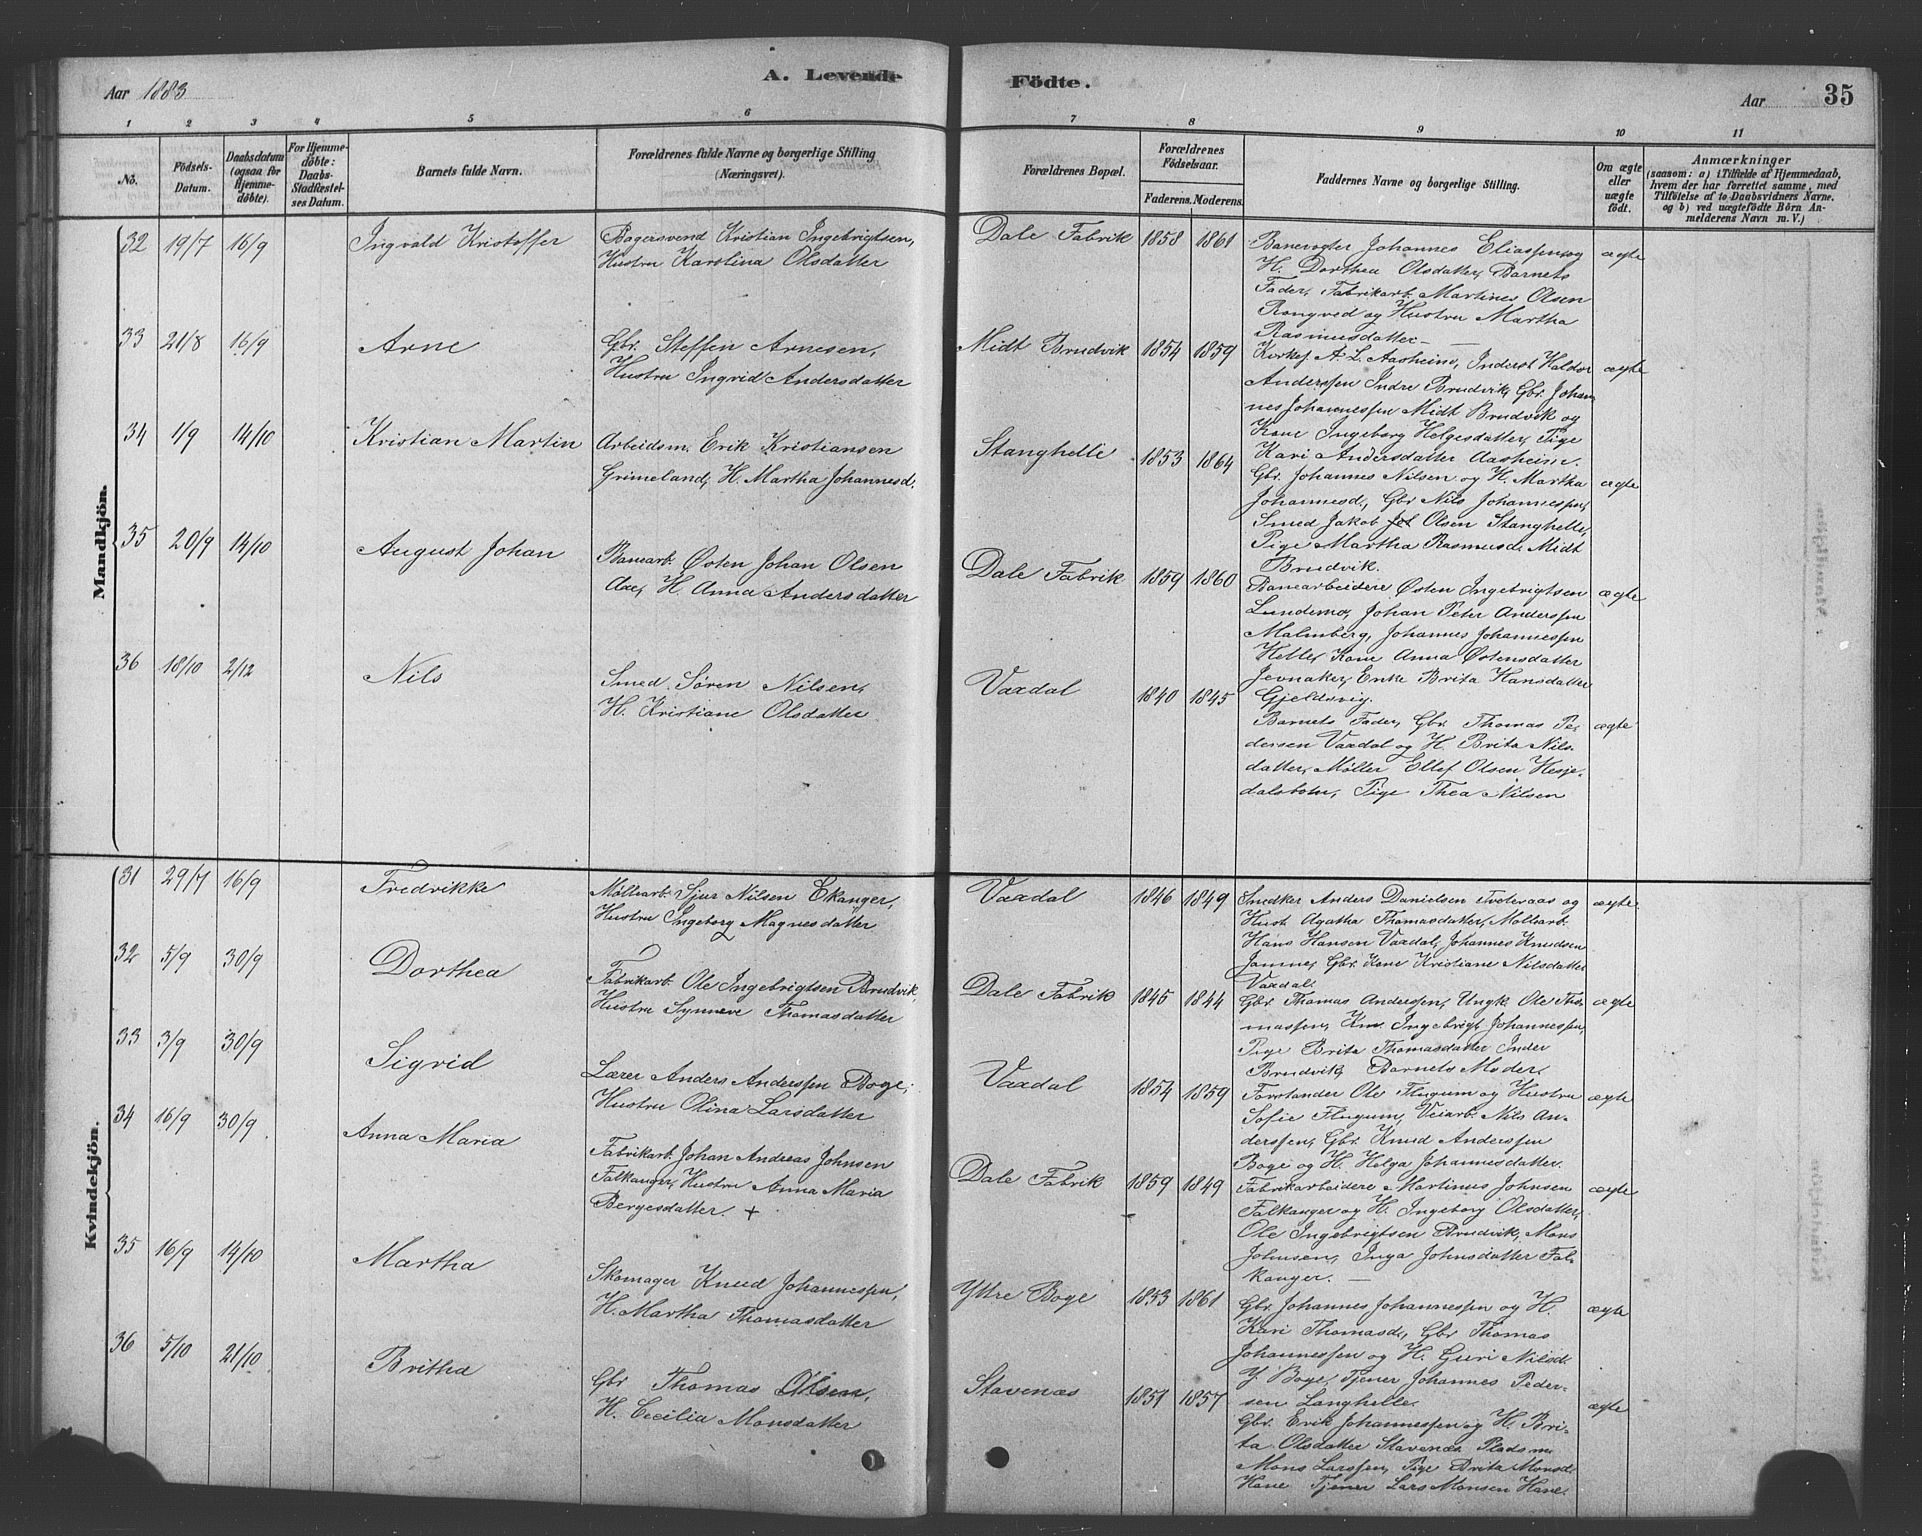 Aar 1883
A. Levende
Födte.
Aar
35
1 2 3 4 5 6 7 8 9 10 11
No.
Födsels-
Datum.
Daabsdatum
(ogsaa for
Hjemme-
döbte).
For Hjemme-
döbte:
Daabs-
Stadfæstel-
ses Datum.
Barnets fulde Navn.
Forældrenes fulde Navne og borgerlige Stilling
(Næringsvei).
Forældrenes Bopæl.
Forældrenes
Födselsaar.
Faderens. Moderens.
Faddernes Navne og borgerlige Stilling.
Om ægte
eller
uægte
födt.
Anmærkninger
(saasom: a) i Tilfælde af Hjemmedaab,
hvem der har forrettet samme, med
Tilföielse af to Daabsvidners Navne.
og b) ved uægtefödte Börn An-
melderens Navn m. V.)
Mandkjön.
32 19/7 16/9 Ingvald Kristoffer
Bagersvend Kristian Ingebrigtsen,
Hustru Karolina Olsdatter
Dale Fabrik 1858 1861
Banevogter Johannes Eliassen og
H. Dorthea Olsdatter, Barnets
Fader, Fabrikarb. Martines Olsen
Rongved og Hustru Martha
Rasmusdatter
ægte
33 21/8 16/9 Arne
Gbr. Steffen Arnesen,
Hustru Ingrid Andersdatter
Midt Brudvik 1854 1859
Kirkes. A. L. Aasheim, Inderst Haldor
Anderssen Indre Brudvik, Gbr. Johan
nes Johannessen Midt Brudvik og
Kone Ingeborg Helgesdatter, Pige
Kari Andersdatter Aasheim.
ægte
34 1/9 14/10 Kristian Martin
Arbeidsm. Erik Kristiansen
Grimeland, H. Martha Johannesd.
Stanghelle 1853 1864
Gbr. Johannes Nilsen og H. Martha
Johannesd., Gbr. Nils Johannessen,
Smed Jakob Olsen Stanghelle,
Pige Martha Rasmusd. Midt
Brudvik.
ægte
35 20/9 14/10 August Johan
Banearb. Östen Johan Olsen
Aae, H. Anna Andersdatter
Dale Fabrik 1859 1860
Banearbeidere Östen Ingebrigtsen
Lundemo, Johan Peter Anderssen
Malmberg, Johannes Johannessen
Helle, Kone Anna Östensdatter
Jevnaker, Enke Brita Hansdatter
Gjeldsvig.
ægte
36 18/10 2/12 Nils
Smed Sören Nilsen,
H. Kristiane Olsdatter
Vaxdal 1840 1845
Barnets Fader, Gbr. Thomas Pe-
dersen Vaxdal og H. Brita Nils-
datter, Möller Ellef Olsen Hesje-
dalsbotn, Pige Thea Nilsen
ægte
Kvindekjön.
31 29/7 16/9 Fredrikke
Möllearb. Sjur Nilsen Ekanger,
Hustru Ingeborg Magnesdatter
Vaxdal 1846 1849
Snedker Anders Danielsen Tveteraas og
Hust. Agatha Thomasdatter, Möllearb.
Hans Hansen Vaxdal, Johannes Knudsen
Jamne, Gbr. Kone Kristiane Nilsdatter
Vaxdal.
ægte
32 5/9 30/9 Dorthea
Fabrikarb. Ole Ingebrigtsen Brudvik,
Hustru Synneve Thomasdatter
Dale Fabrik 1845 1844
Gbr. Thomas Anderssen, Ungk. Ole Tho-
massen, Km. Ingebrigt Johannessen,
Pige Brita Thomasdatter Inder
Brudvik, Barnets Moder.
ægte
33 3/9 30/9 Sigrid
Lærer Anders Anderssen Boge,
Hustru Olina Larsdatter
Vaxdal 1854 1859
Forstander Ole Flugum og Hustru
Sofie Flugum, Veiarb. Nils An-
derssen, Gbr. Knud Anderssen
Boge og H. Helga Johannesdatter.
ægte
34 16/9 30/9 Anna Maria
Fabrikarb. Johan Andreas Johnsen
Falkanger, Hustru Anna Maria
Bergesdatter. +
Dale Fabrik 1859 1849
Fabrikarbeidere Martinus Johnsen
Falkanger og H. Ingeborg Olsdatter,
Ole Ingebrigtsen Brudvik, Mons
Johnsen, Inga Johnsdatter Fal-
kanger.
ægte
35 16/9 14/10 Martha
Skomager Knud Johannessen,
H. Martha Thomasdatter
Yttre Boge 1853 1861
Gbr. Johannes Johannessen og H.
Kari Thomasd., Gbr. Thomas
Johannessen og H. Guri Nilsd.
Y. Boge, Tjener Johannes Peder-
sen Langhelle.
ægte
36 5/10 21/10 Britha
Gbr. Thomas Olsen,
H. Cecilia Monsdatter
Stavenæs 1851 1857
Gbr. Erik Johannessen og H. Bri-
ta Olsdatter Stavenæs, Pladsm.
Mons Larssen, Pige Brita Monsd.
Hane Tjener Lars Monsen Hane.
ægte